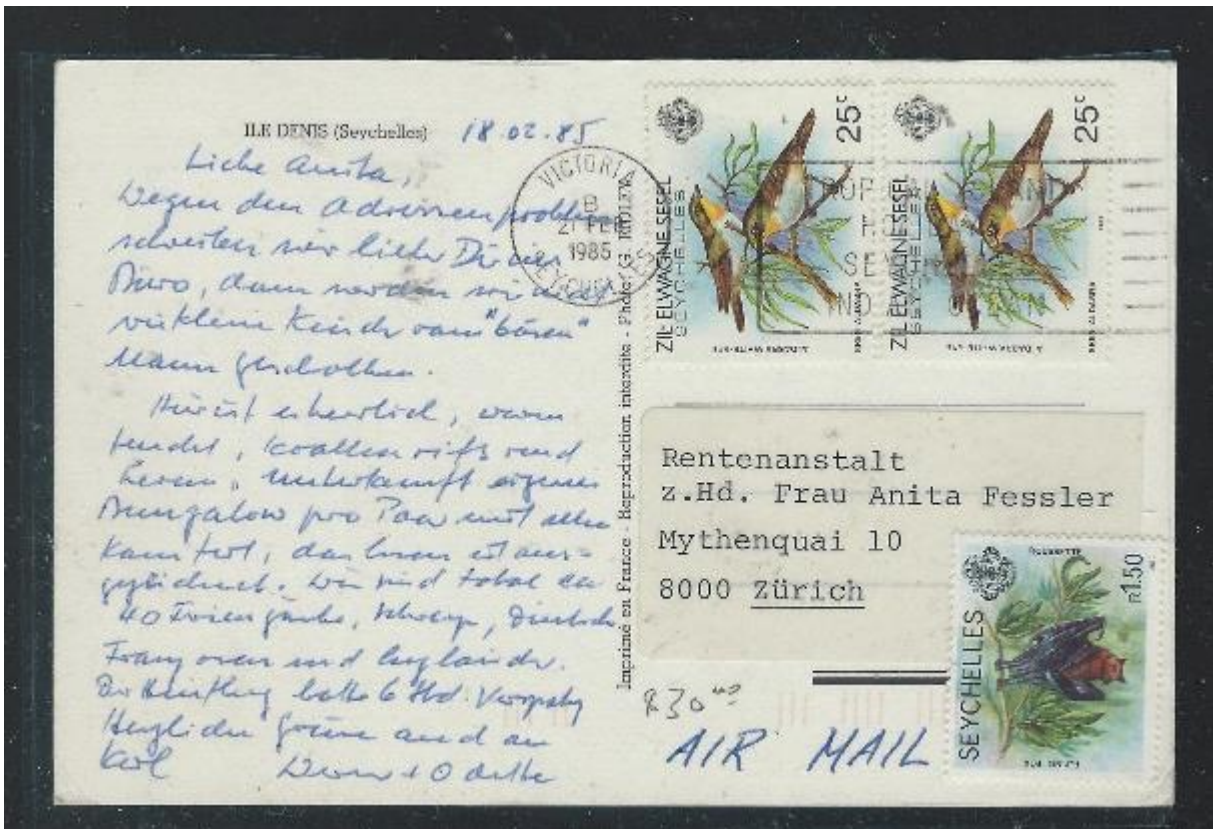 ILE DENIS (Seychelles) 18.02.85
Liebe Anita,
Wegen dem Adressenproblem
schreiben wir lieber Dir ins
Büro, dann werden wir nicht
wie kleine Kinder vom "bösen"
Mann gescholten.
Hier ist es herrlich, warm
feucht, Korallenriffs rund
herum, Unterkunft eigener
Bungalow pro Paar mit allem
Komfort, das Essen ist aus-
gezeichnet. Wir sind total ca
40 Feriengäste, Schweizer, Deutsche
Franzosen und Engländer.
Der Hinflug hatte 6 Std. Verspätg
Herzliche Grüsse auch an
Werner + Odette
Imprimé en France - Reproduction interdite - Photo G.
VICTORIA
B
21 FEB
1985
SEYCHELLES
25c
ZIL ELWAGNE SESEL
SEYCHELLES
ALDABRA WHITE-EYE
25c
ZIL ELWAGNE SESEL
SEYCHELLES
ALDABRA WHITE-EYE
Rentenanstalt
z.Hd. Frau Anita Fessler
Mythenquai 10
8000 Zürich
ROUSSETTE
R1.50
SEYCHELLES
FLYING FOX
R30
AIR MAIL